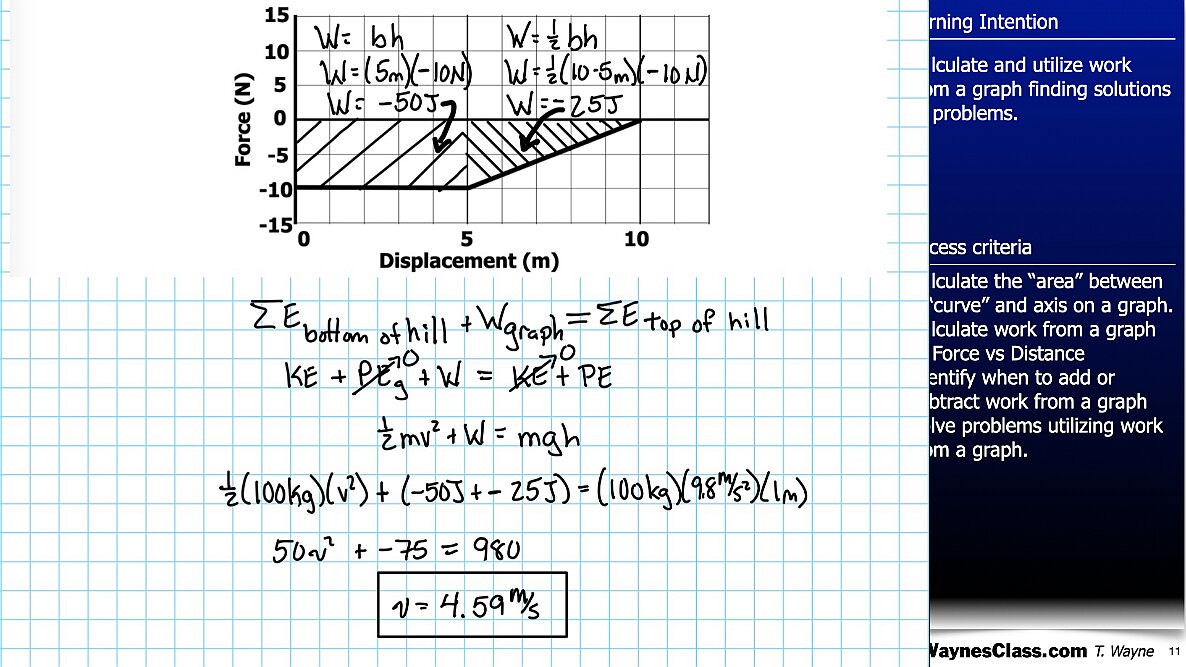 15
10
5
0
-5
-10
-15
Force (N)
W= bh
W=(5m)(-10N)
W= -50J
W=½bh
W=½(10-5m)(-10N)
W=-25J
0 5 10
Displacement (m)
ΣE bottom of hill + W graph = ΣE top of hill
KE + PEg→0 + W = KE→0 + PE
½mv² + W = mgh
½(100kg)(v²) + (-50J + - 25J) = (100kg)(9.8m/s²)(1m)
50v² + -75 = 980
v = 4.59 m/s
rning Intention
lculate and utilize work
m a graph finding solutions
problems.
cess criteria
lculate the “area” between
“curve” and axis on a graph.
lculate work from a graph
Force vs Distance
entify when to add or
btract work from a graph
lve problems utilizing work
m a graph.
WaynesClass.com T. Wayne 11